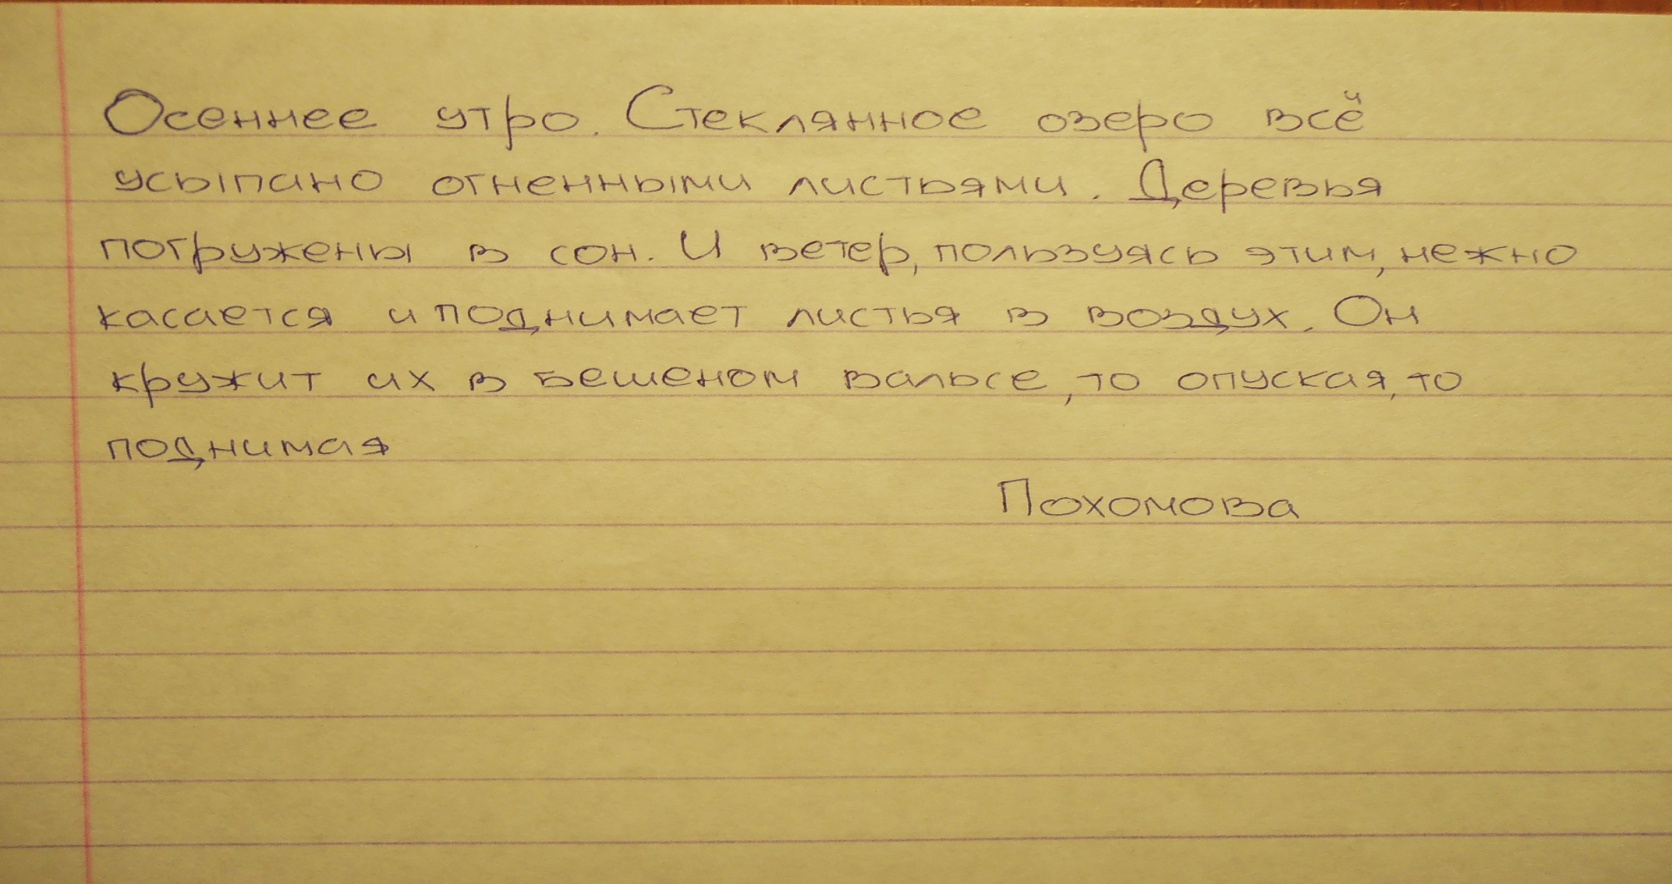 Осеннее утро. Стеклянное озеро всё
усыпано огненными листьями. Деревья
погружены в сон. И ветер, пользуясь этим, нежно
касается и поднимает листья в воздух. Он
кружит их в бешеном вальсе, то опуская, то
поднимая
Похомова